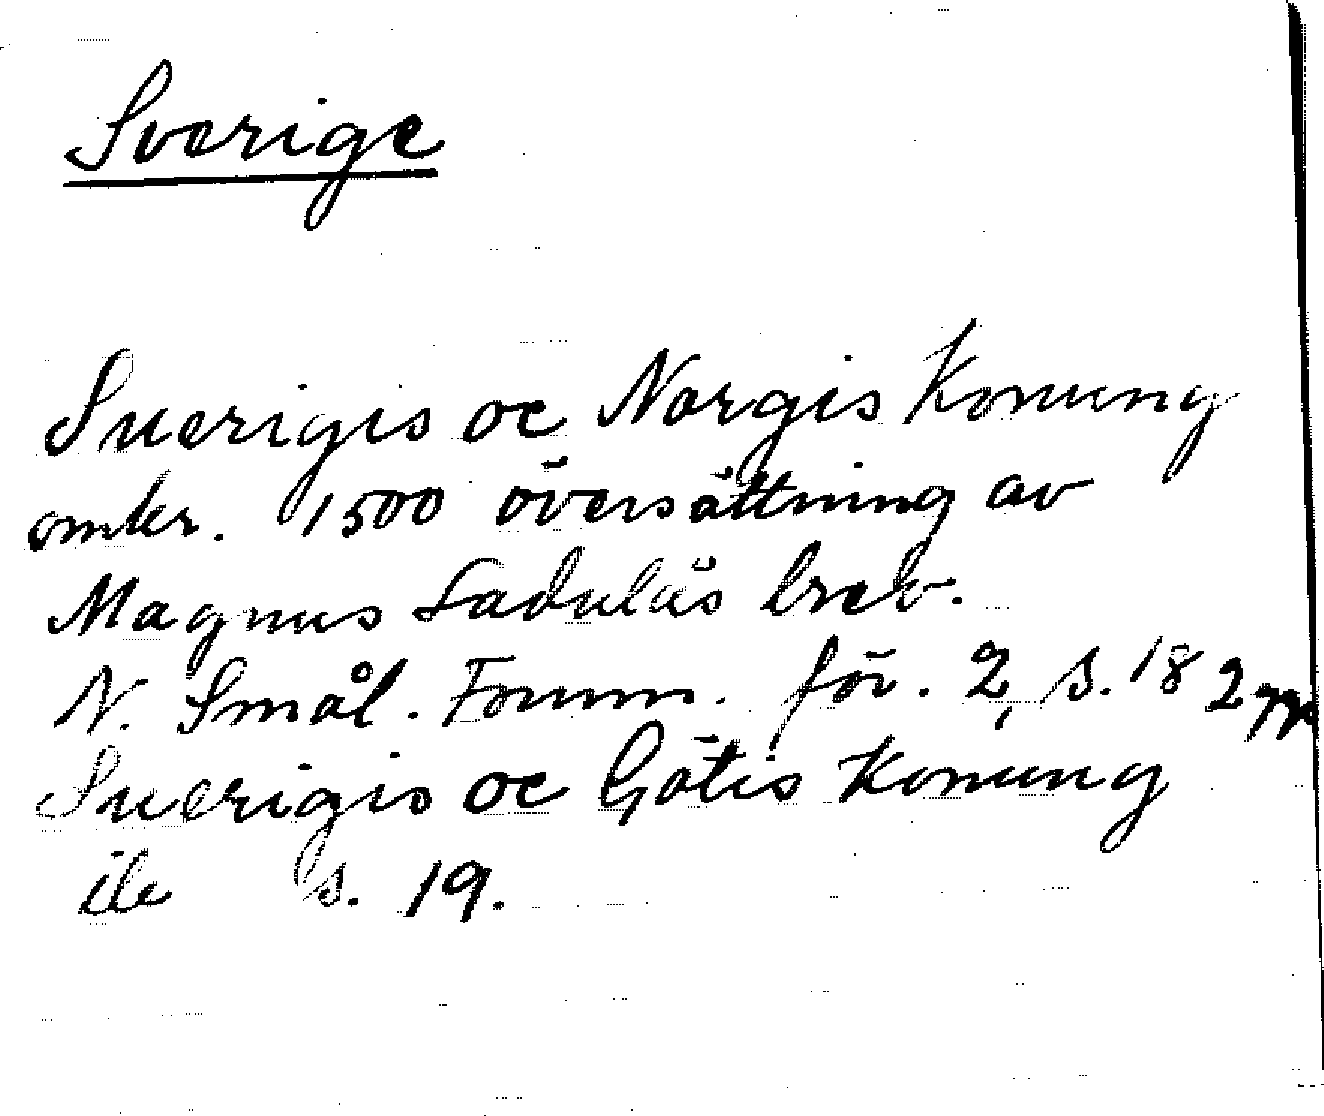 Sverige
Suerigis oc Norgis Konung
omkr. 1500 översättning av
Magnus Ladulås brev.
N. Smål. Fornm. för. 2, s. 18
Suerigis oc Götis Konung
ib s. 19.